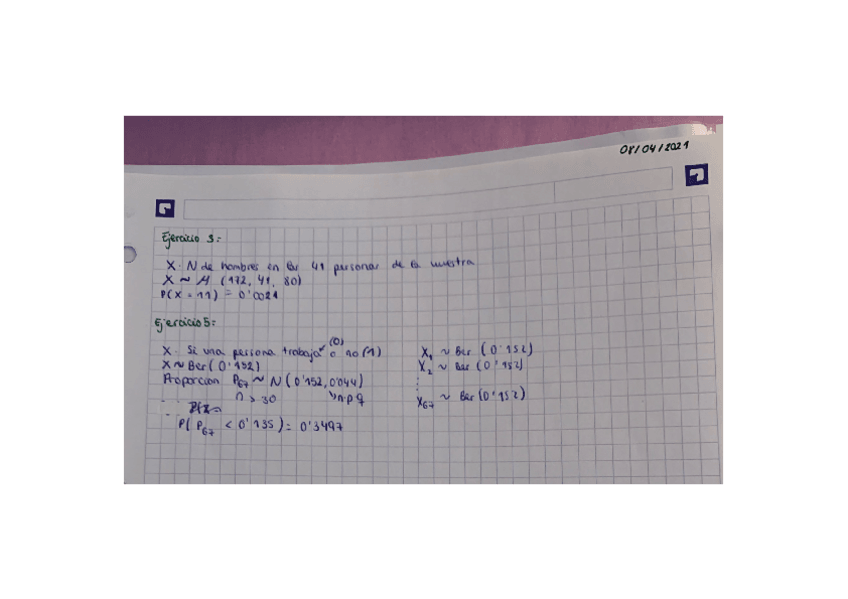 08/04/2021
Ejercicio 3:
X: N de hombres en las 41 personas de la muestra
X ~ H (172, 41, 80)
P(X = 11) = 0'0021
Ejercicio 5:
X: Si una persona trabaja (0) o no (1)
X ~ Ber (0'152)
Proporcion P67 ~ N (0'152, 0'044)
n > 30 npq
P( P67 < 0'135) = 0'3497
X1 ~ Ber (0'152)
X2 ~ Ber (0'152)
X67 ~ Ber (0'152)